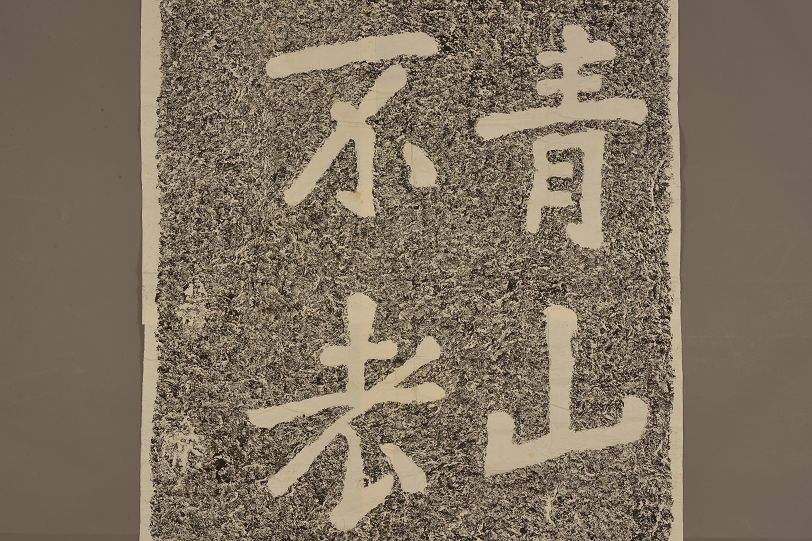 青山
不老